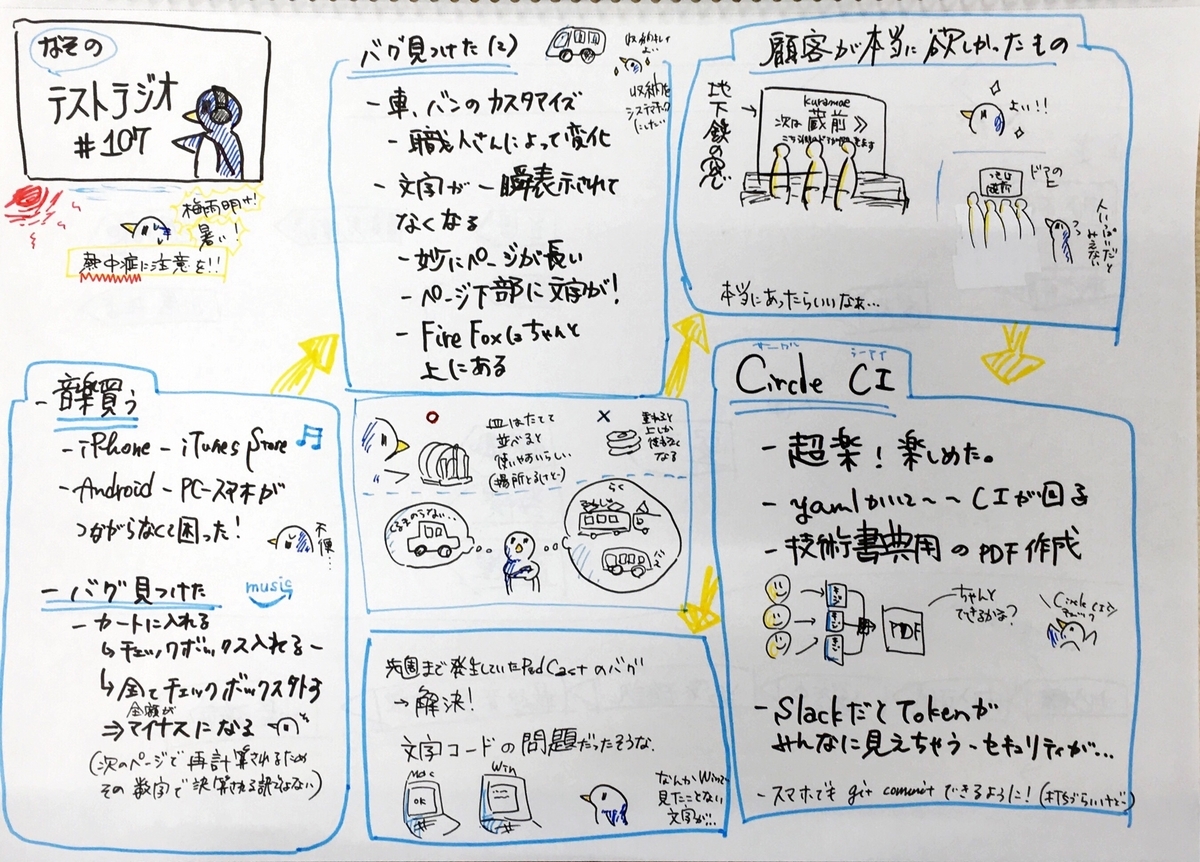 なその
テストラジオ
#107
梅雨明け!
暑い!
熱中症に注意を!!
- 音楽買う
- iPhone - iTunes Store
- Android - PC-スマホが
つながらなくて困った!
不便…
- バグ見つけた
music
- カートに入れる
↳ チェックボックス入れる
↳ 全てチェックボックス外す
金額が
⇒ マイナスになる
(次のページで再計算されるため
その数字で決算される訳ではない)
バグ見つけた(2)
- 車、バンのカスタマイズ
- 職人さんによって変化
- 文字が一瞬表示されて
なくなる
- 妙にページが長い
- ページ下部に文字が!
- FireFoxはちゃんと
上にある
皿はたてて
並べると
使いやすいらしい
(場所とるけど)
重ねると
上しか
使わなく
なる
くるまのらない…
らく
先週まで発生していたPodCastのバグ
→ 解決!
文字コードの問題だったそうな.
Mac
OK
Win
なんかWinで
見たことない
文字が…
顧客が本当に欲しかったもの
地下鉄の窓
kuramae
次は 蔵前 》
よい!!
ドアの上
人いっぱいだと
みえない
本当にあったらいいなぁ…
サークル シーアイ
Circle CI
- 超楽! 楽しめた。
- yamlかいて〜〜CIが回る
- 技術書典用のPDF作成
PDF
ちゃんと
できるかな?
Circle CIで
チェック
- SlackだとTokenが
みんなに見えちゃう - セキュリティが…
- スマホでもgit commitできるように! (打ちづらいけど)